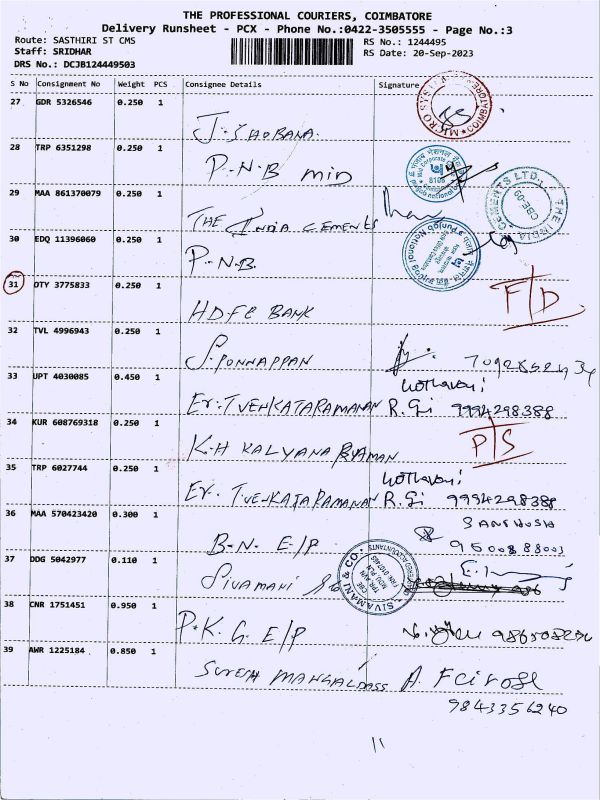 THE PROFESSIONAL COURIERS, COIMBATORE
Delivery Runsheet - PCX - Phone No.:0422-3505555 - Page No.:3
Route: SASTHIRI ST CMS
RS No.: 1244495
Staff: SRIDHAR
RS Date: 20-Sep-2023
DRS No.: DCJB124449503
S No Consignment No Weight PCS Consignee Details Signature
27 GDR 5326546 0.250 1
J. SHOBANA
28 TRP 6351298 0.250 1
P.N.B MID
29 MAA 861370079 0.250 1
THE INDIA CEMENTS
THE INDIA CEMENTS LTD., CBE-05
30 EDQ 11396060 0.250 1
P.N.B.
31 OTY 3775833 0.250 1
HDFC BANK
F/D
32 TVL 4996943 0.250 1
S. PONNAPPAN
33 UPT 4030085 0.450 1
Er. T.VENKATARAMANAN R.Gi 9994298388
34 KUR 608769318 0.250 1
K.H KALYANA RAMAN
P/S
35 TRP 6027744 0.250 1
Er. T.VENKATARAMANAN R.Gi 9994298388
36 MAA 570423420 0.300 1
B.N. E/P
SANTHOSH
9500888003
37 DDG 5042977 0.110 1
SIVAMANI
SIVAMANI & CO. CHARTERED ACCOUNTANTS
38 CNR 1751451 0.950 1
P.K.G. E/P
39 AWR 1225184 0.850 1
SURESH MANGALDASS
9843356240
11